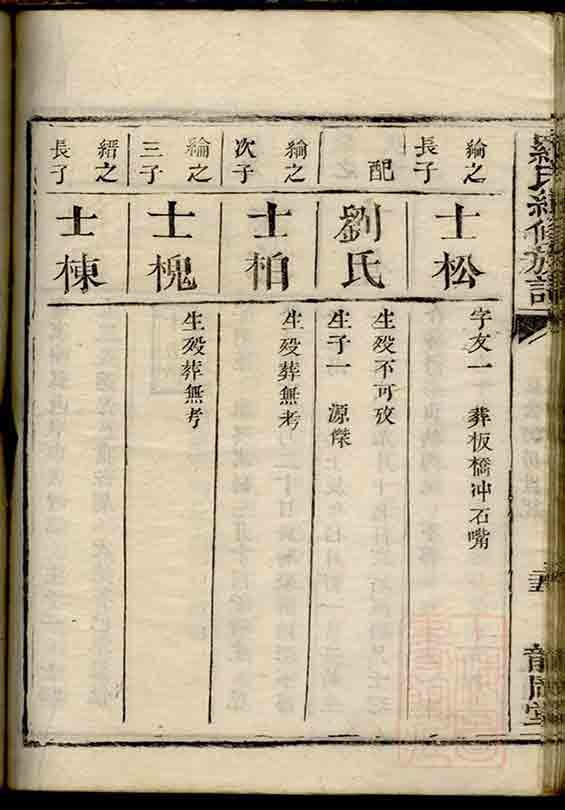 綸之
長子
士松
字友一 葬板橋冲石嘴
配
劉氏
生歿不可攷
生子一 源傑
綸之
次子
士柏
生歿葬無考
綸之
三子
士槐
生歿葬無考
縉之
長子
士棟
羅氏續修族譜